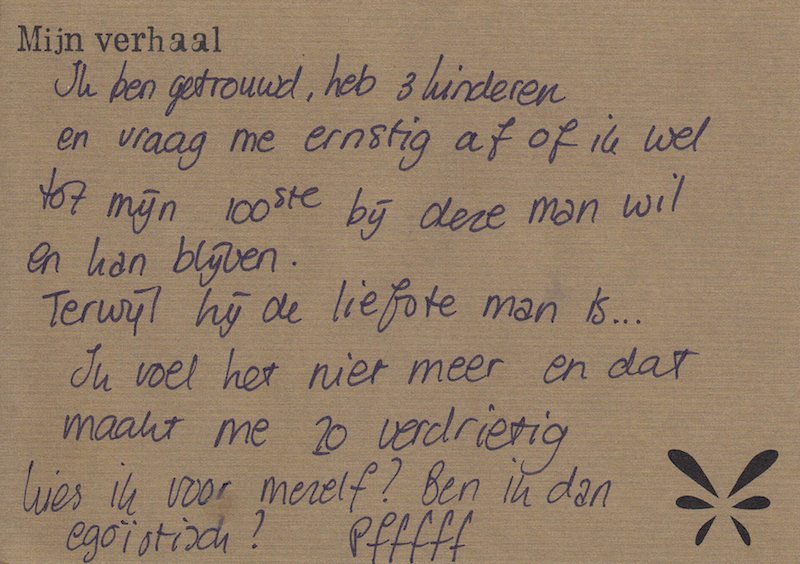 Mijn verhaal
Ik ben getrouwd, heb 3 kinderen
en vraag me ernstig af of ik wel
tot mijn 100ste bij deze man wil
en kan blijven.
Terwijl hij de liefste man is...
Ik voel het niet meer en dat
maakt me zo verdrietig
Kies ik voor mezelf? Ben ik dan
egoïstisch? Pffffff